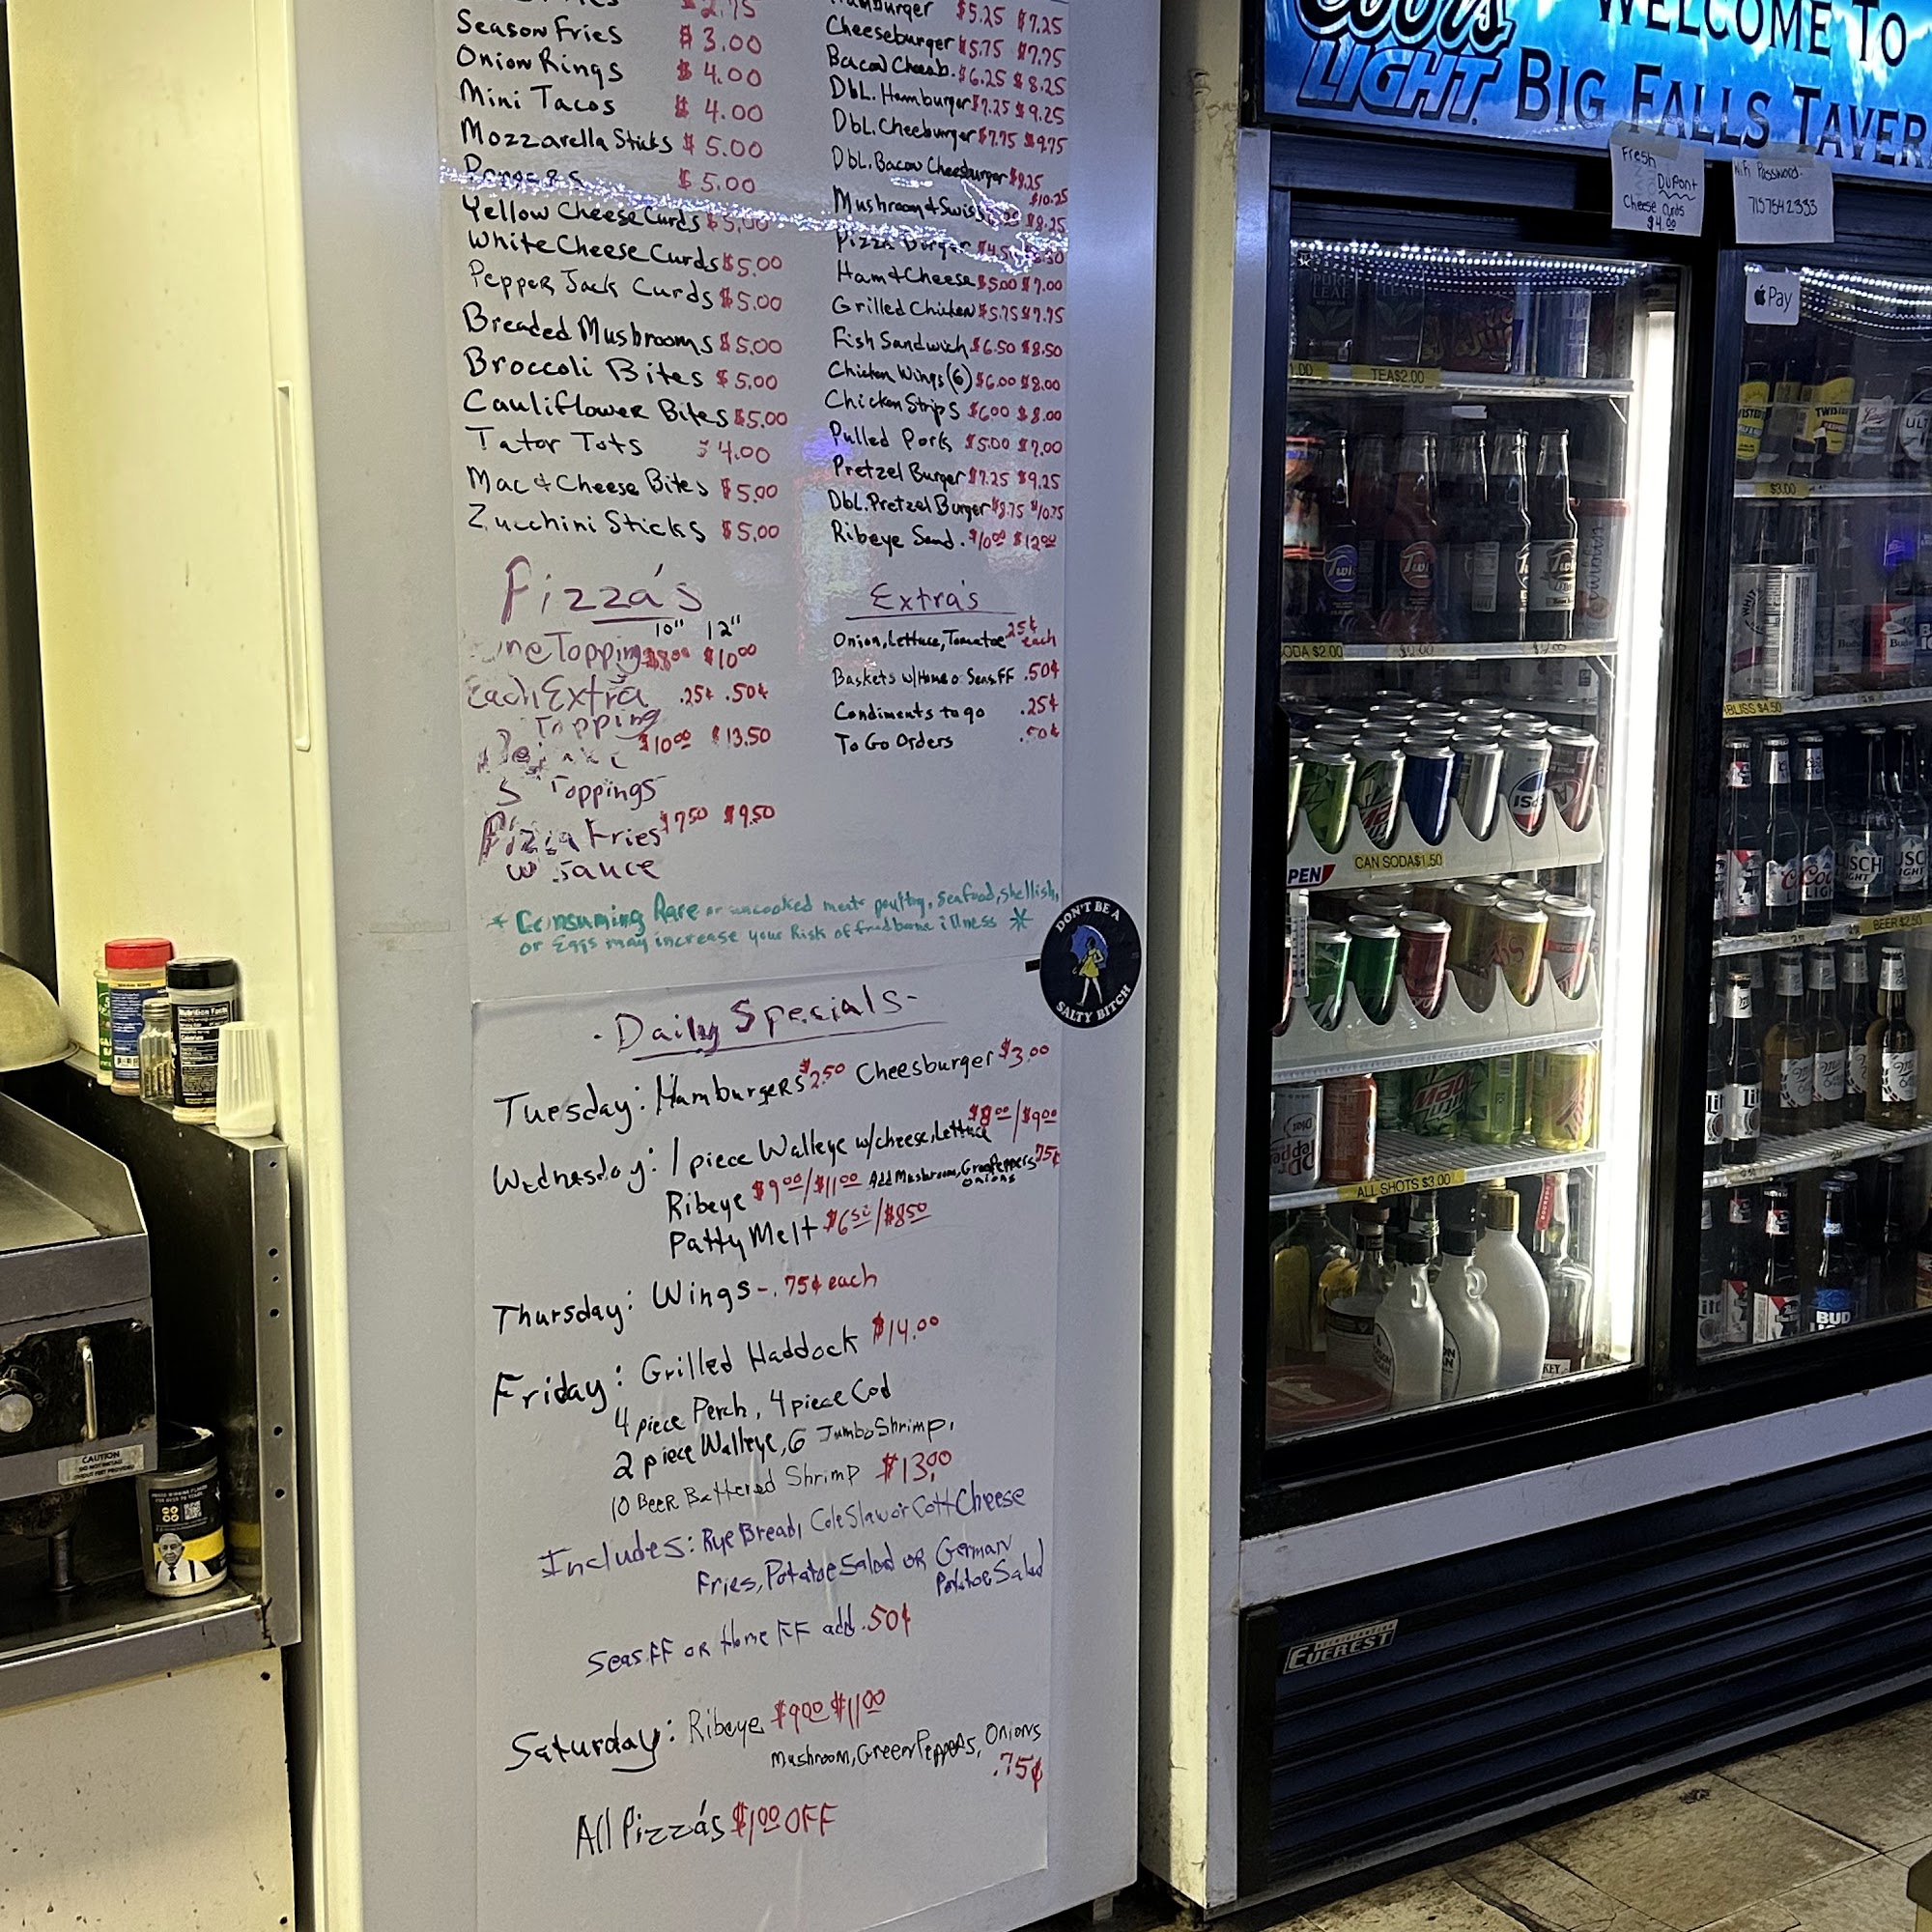 Season Fries $3.00
Onion Rings $4.00
Mini Tacos $4.00
Mozzarella Sticks $5.00
$5.00
Yellow Cheese Curds $5.00
White Cheese Curds $5.00
Pepper Jack Curds $5.00
Breaded Mushrooms $5.00
Broccoli Bites $5.00
Cauliflower Bites $5.00
Tator Tots $4.00
Mac & Cheese Bites $5.00
Zucchini Sticks $5.00
Hamburger $5.25 $7.25
Cheeseburger $5.75 $7.75
Bacon Cheeseb. $6.25 $8.25
Dbl. Hamburger $7.25 $9.25
Dbl. Cheeburger $7.75 $9.75
Dbl. Bacon Cheesburger $8.25
$10.25
Mushroom & Swiss $8.25
Pizza Burger
Ham & Cheese $5.00 $7.00
Grilled Chicken $5.75 $7.75
Fish Sandwich $6.50 $8.50
Chicken Wings (6) $6.00 $8.00
Chicken Strips $6.00 $8.00
Pulled Pork $5.00 $7.00
Pretzel Burger $7.25 $9.25
Dbl. Pretzel Burger $8.75 $10.75
Ribeye Sand. $10.00 $12.00
Pizza's
10" 12"
One Topping $8.00 $10.00
Each Extra .25¢ .50¢
Topping
$10.00 $13.50
5 Toppings
Pizza Fries $7.50 $9.50
w Sauce
Extra's
Onion, Lettuce, Tomatoe 25¢
each
Baskets w/Home o Seas FF .50¢
Condiments to go .25¢
To Go Orders .50¢
* Consuming Rare or uncooked meats poultry, seafood, shellish,
or Eggs may increase your Risk of foodborne illness *
DON'T BE A
SALTY BITCH
- Daily Specials -
Tuesday: Hamburgers $2.50 Cheesburger $3.00
Wednesday: 1 piece Walleye w/cheese, Lettuce $8.00/$9.00
Ribeye $9.00/$11.00 Add Mushroom, Green Peppers 75¢
onions
Patty Melt $6.50/$8.50
Thursday: Wings - .75¢ each
Friday: Grilled Haddock $14.00
4 piece Perch, 4 piece Cod
2 piece Walleye, 6 Jumbo Shrimp,
10 Beer Battered Shrimp $13.00
Includes: Rye Bread, Cole Slaw or Cott Cheese
Fries, Potatoe Salad OR German
Potatoe Salad
Seas.FF OR Home FF add .50¢
Saturday: Ribeye $9.00 $11.00
Mushroom, Green Peppers, Onions
.75¢
All Pizza's $1.00 OFF
Coors
LIGHT
WELCOME TO
BIG FALLS TAVER
Fresh
DuPont
Cheese Curds
$4.00
Wifi Password-
7157542333
Pay
TEA $2.00
ODA $2.00
$3.00
ABLISS $4.50
PEN
CAN SODA $1.50
BEER $2.50
ALL SHOTS $3.00
BUD
EVEREST
CAUTION